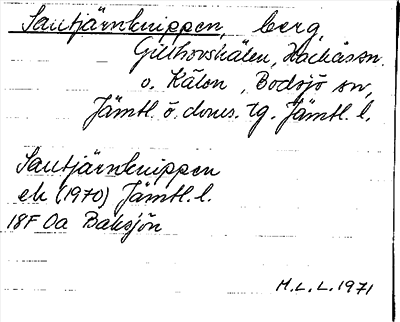 Sautjärnknippen, berg,
Gillhovskälen, Hackås sn.
o. Kälen, Bodsjö sn,
Jämtl. ö. doms. tg. Jämtl. l.
Sautjärnknippen
ek (1970) Jämtl. l.
18F 0a Baksjön
M.L.L. 1971